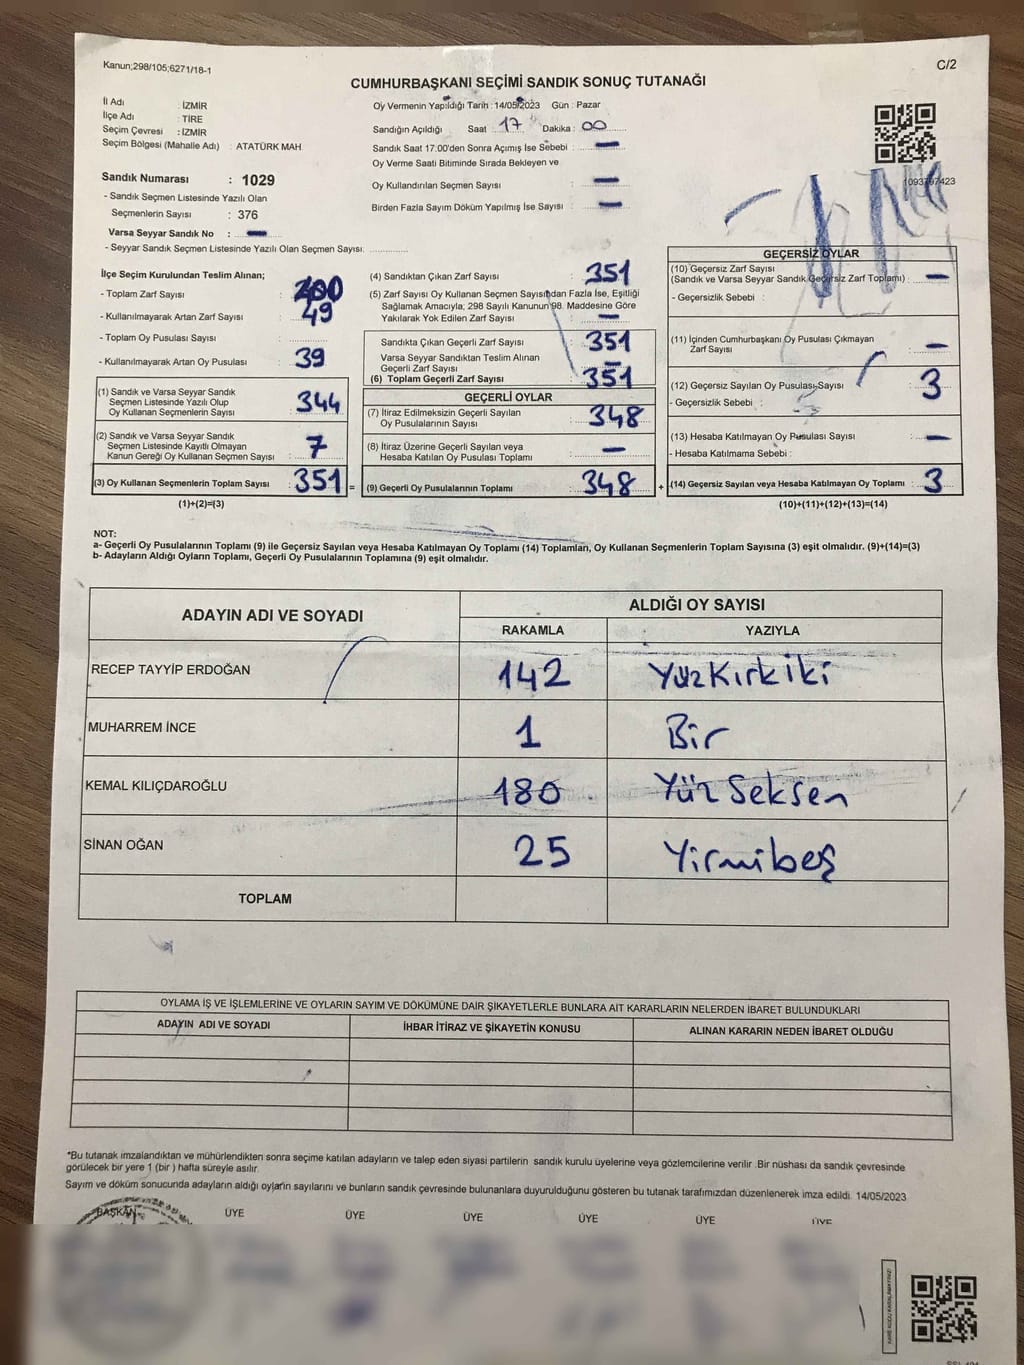 Kanun;298/105;6271/18-1
C/2
CUMHURBAŞKANI SEÇİMİ SANDIK SONUÇ TUTANAĞI
İl Adı : İZMİR
İlçe Adı : TİRE
Seçim Çevresi : İZMİR
Seçim Bölgesi (Mahalle Adı) : ATATÜRK MAH.
Sandık Numarası : 1029
- Sandık Seçmen Listesinde Yazılı Olan
Seçmenlerin Sayısı : 376
Varsa Seyyar Sandık No : —
- Seyyar Sandık Seçmen Listesinde Yazılı Olan Seçmen Sayısı:
Oy Vermenin Yapıldığı Tarih : 14/05/2023 Gün : Pazar
Sandığın Açıldığı Saat : 17 Dakika : 00
Sandık Saat 17:00'den Sonra Açımış İse Sebebi : —
Oy Verme Saati Bitiminde Sırada Bekleyen ve
Oy Kullandırılan Seçmen Sayısı : —
Birden Fazla Sayım Döküm Yapılmış İse Sayısı : —
1093797423
İlçe Seçim Kurulundan Teslim Alınan;
- Toplam Zarf Sayısı : 400
- Kullanılmayarak Artan Zarf Sayısı : 49
- Toplam Oy Pusulası Sayısı :
- Kullanılmayarak Artan Oy Pusulası : 39
(1) Sandık ve Varsa Seyyar Sandık
Seçmen Listesinde Yazılı Olup
Oy Kullanan Seçmenlerin Sayısı : 344
(2) Sandık ve Varsa Seyyar Sandık
Seçmen Listesinde Kayıtlı Olmayan
Kanun Gereği Oy Kullanan Seçmen Sayısı : 7
(3) Oy Kullanan Seçmenlerin Toplam Sayısı 351 =
(1)+(2)=(3)
(4) Sandıktan Çıkan Zarf Sayısı : 351
(5) Zarf Sayısı Oy Kullanan Seçmen Sayısından Fazla İse, Eşitliği
Sağlamak Amacıyla; 298 Sayılı Kanunun 98. Maddesine Göre
Yakılarak Yok Edilen Zarf Sayısı : —
Sandıkta Çıkan Geçerli Zarf Sayısı : 351
Varsa Seyyar Sandıktan Teslim Alınan
Geçerli Zarf Sayısı : —
(6) Toplam Geçerli Zarf Sayısı : 351
GEÇERLİ OYLAR
(7) İtiraz Edilmeksizin Geçerli Sayılan
Oy Pusulalarının Sayısı : 348
(8) İtiraz Üzerine Geçerli Sayılan veya
Hesaba Katılan Oy Pusulası Toplamı : —
(9) Geçerli Oy Pusulalarının Toplamı : 348 +
GEÇERSİZ OYLAR
(10) Geçersiz Zarf Sayısı
(Sandık ve Varsa Seyyar Sandık Geçersiz Zarf Toplamı) : —
- Geçersizlik Sebebi :
(11) İçinden Cumhurbaşkanı Oy Pusulası Çıkmayan
Zarf Sayısı : —
(12) Geçersiz Sayılan Oy Pusulası Sayısı : 3
- Geçersizlik Sebebi :
(13) Hesaba Katılmayan Oy Pusulası Sayısı : —
- Hesaba Katılmama Sebebi :
(14) Geçersiz Sayılan veya Hesaba Katılmayan Oy Toplamı : 3
(10)+(11)+(12)+(13)=(14)
NOT:
a- Geçerli Oy Pusulalarının Toplamı (9) ile Geçersiz Sayılan veya Hesaba Katılmayan Oy Toplamı (14) Toplamları, Oy Kullanan Seçmenlerin Toplam Sayısına (3) eşit olmalıdır. (9)+(14)=(3)
b- Adayların Aldığı Oyların Toplamı, Geçerli Oy Pusulalarının Toplamına (9) eşit olmalıdır.
ADAYIN ADI VE SOYADI ALDIĞI OY SAYISI
RAKAMLA YAZIYLA
RECEP TAYYİP ERDOĞAN 142 YüzKırkiki
MUHARREM İNCE 1 Bir
KEMAL KILIÇDAROĞLU 180 Yüz Seksen
SİNAN OĞAN 25 Yirmibeş
TOPLAM
OYLAMA İŞ VE İŞLEMLERİNE VE OYLARIN SAYIM VE DÖKÜMÜNE DAİR ŞİKAYETLERLE BUNLARA AİT KARARLARIN NELERDEN İBARET BULUNDUKLARI
ADAYIN ADI VE SOYADI İHBAR İTİRAZ VE ŞİKAYETİN KONUSU ALINAN KARARIN NEDEN İBARET OLDUĞU
*Bu tutanak imzalandıktan ve mühürlendikten sonra seçime katılan adayların ve talep eden siyasi partilerin sandık kurulu üyelerine veya gözlemcilerine verilir .Bir nüshası da sandık çevresinde
görülecek bir yere 1 (bir ) hafta süreyle asılır.
Sayım ve döküm sonucunda adayların aldığı oyların sayılarını ve bunların sandık çevresinde bulunanlara duyurulduğunu gösteren bu tutanak tarafımızdan düzenlenerek imza edildi. 14/05/2023
BAŞKAN ÜYE ÜYE ÜYE ÜYE ÜYE ÜYE